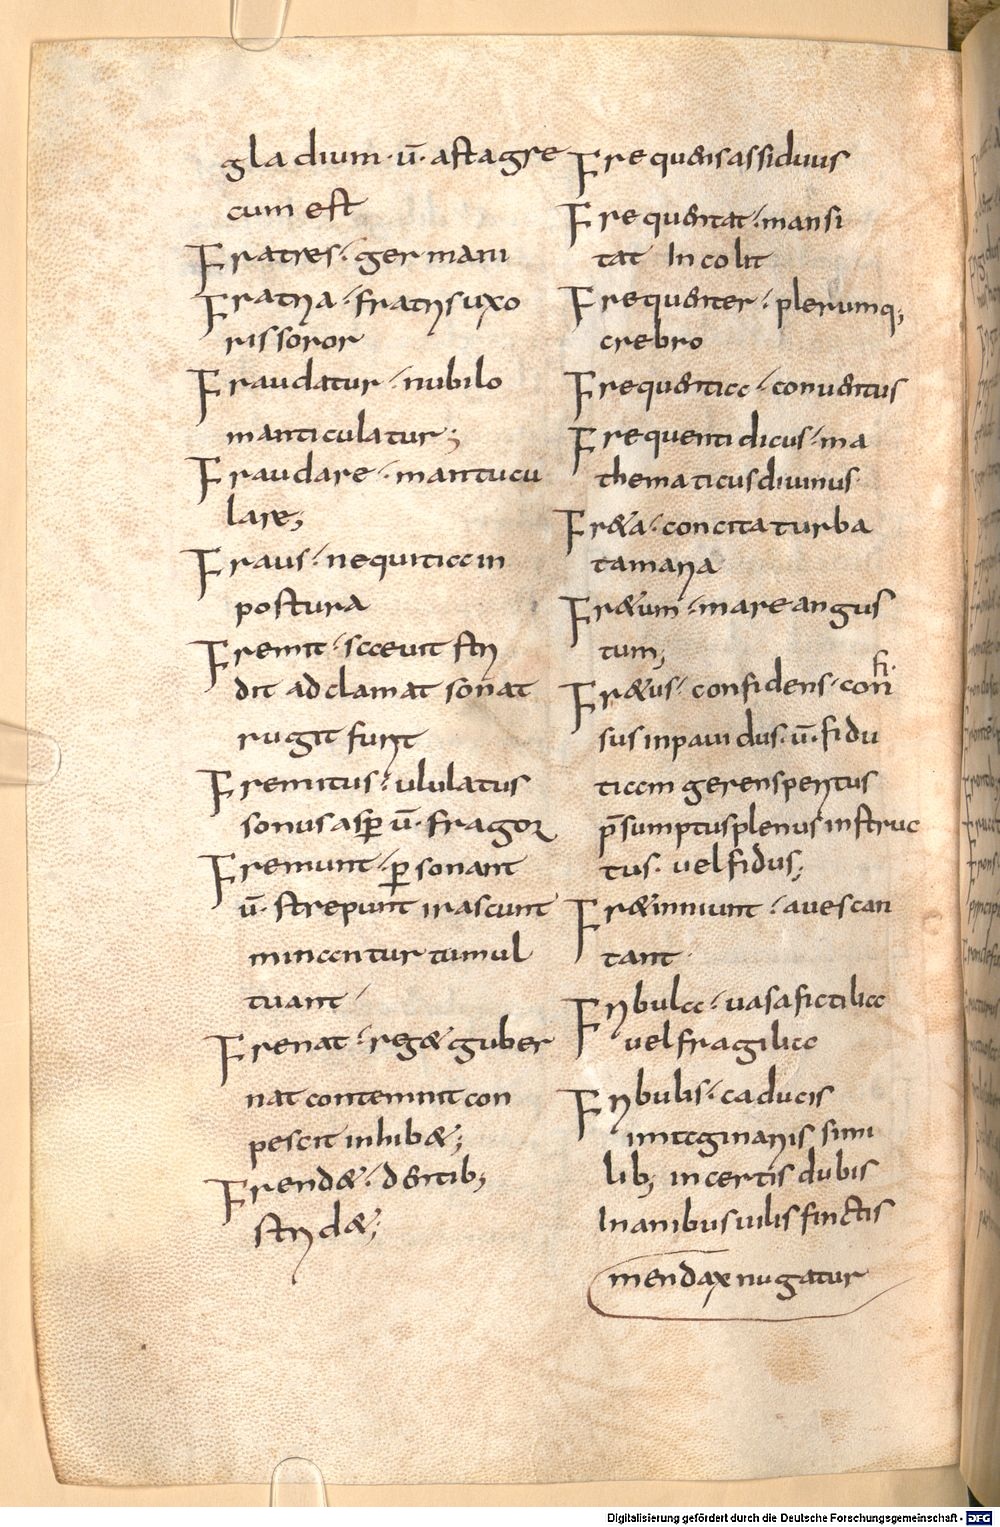 gladium · ū · astagre
cum est
Fratres · germani
Fratria · fratrisuxo
rissoror
Fraudatur · nubilo
manticulatur;
Fraudare · mantucu
lare;
Fraus · nequiticcin
postura
Fremit · sccevit stri
dit adclamat sonat
rugit furit
Fremitus · ululatus
sonus asꝑ ū · fragor
Fremunt · ꝑsonant
ū · strepunt irascunt
minccntur tumul
tuant
Frenat · reg& guber
nat contemnit con
pescit inhib&;
Frend& · dentib;
strid&;
Frequensassiduus
Frequentat · mansi
tat Incolit
Frequenter · plerumq;
crebro
Frequenticc · conuentus
Frequentidicus · ma
thematicusdiuinus
Fr&a · concitaturba
tamaria
Fr&um · mareangus
tum;
fi·
Fr&us · confidens · con
susinpauidus · ū · fidu
ticcm gerensperitus
p̄sumptusplenusinstruc
tus · velfidus;
Fr&inniunt · auescan
tant
Fribulcc · vasafictilicc
velfragilicc
Fribulis · caducis
imcginariis simi
lib; incertis dubis
Inanibusuilisfinctis
mendaxnugatur
Digitalisierung gefördert durch die Deutsche Forschungsgemeinschaft - DFG